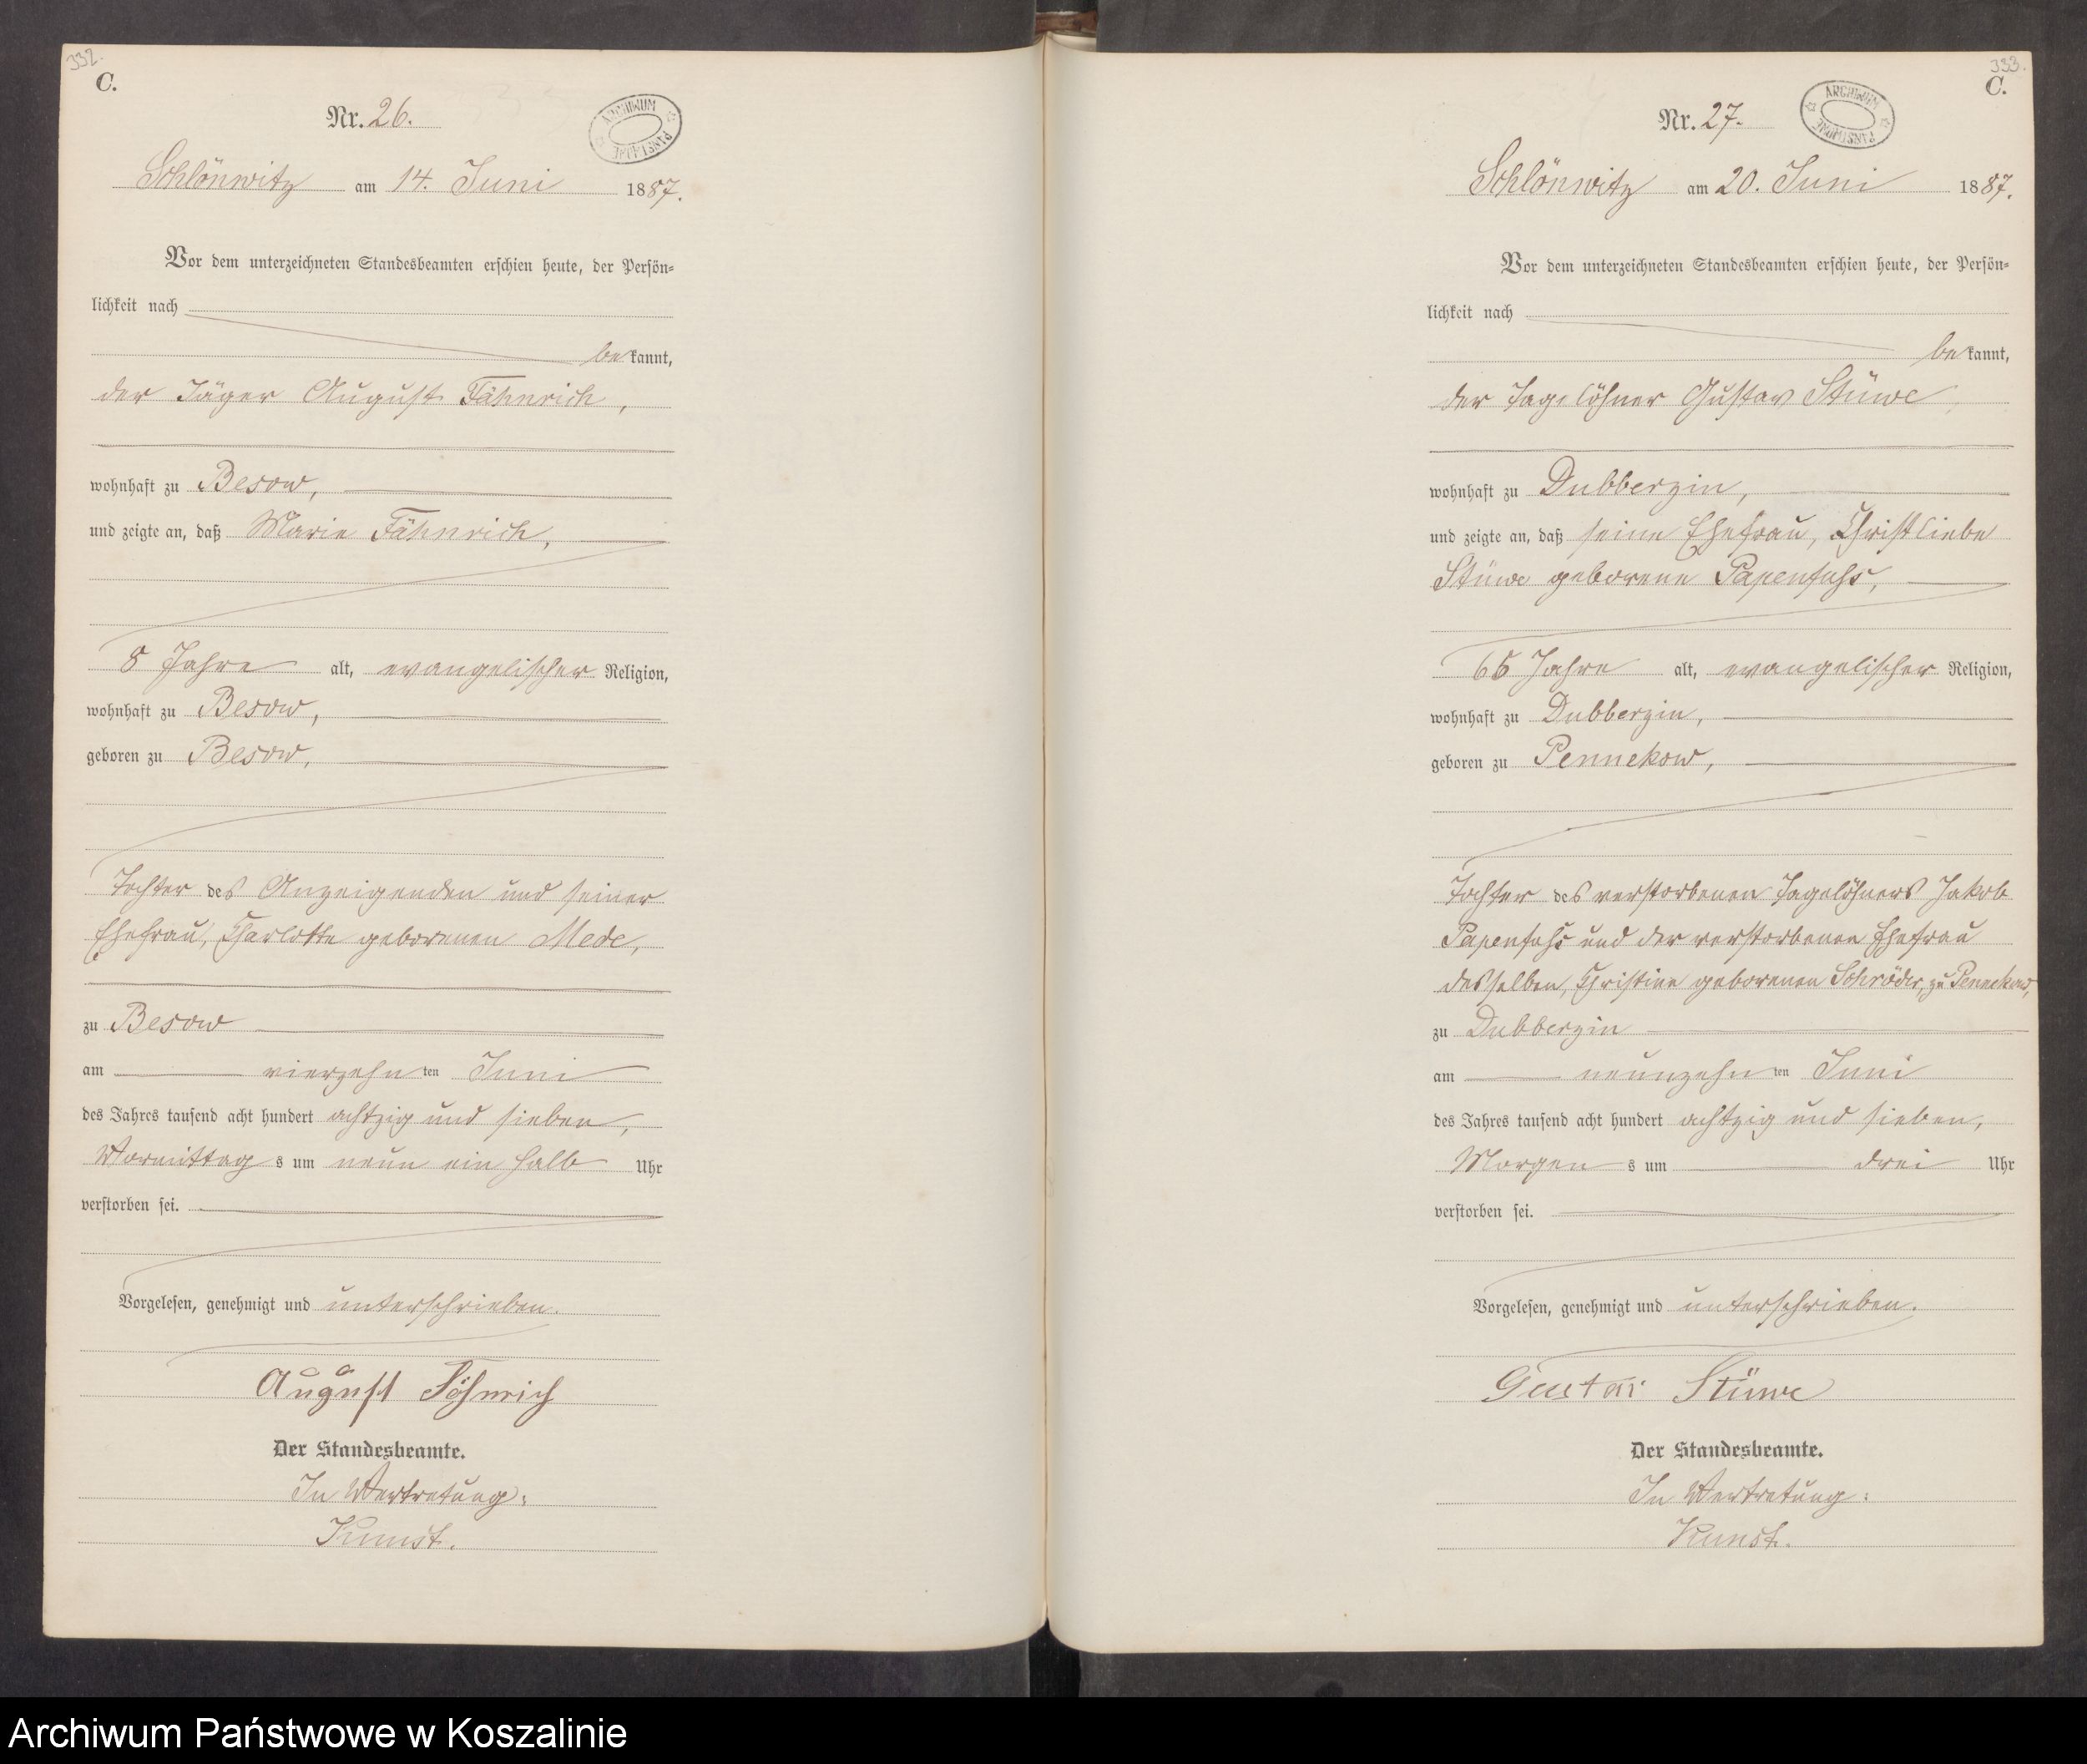 332.
C.
Nr. 26.
ARCHIWUM PAŃSTWOWE
Schlönwitz am 14. Juni 1887.
Vor dem unterzeichneten Standesbeamten erschien heute, der Persön=
lichkeit nach
bekannt,
der Jäger August Fähnrich,
wohnhaft zu Besow,
und zeigte an, daß Marie Fähnrich,
8 Jahre alt, evangelischer Religion,
wohnhaft zu Besow,
geboren zu Besow,
Tochter des Anzeigenden und seiner
Ehefrau, Charlotte geborenen Mede,
zu Besow
am vierzehn ten Juni
des Jahres tausend acht hundert achtzig und sieben,
Vormittag s um neun ein halb Uhr
verstorben sei.
Vorgelesen, genehmigt und unterschrieben.
August Föhnrich
Der Standesbeamte.
In Vertretung:
Kunst.
333.
C.
Nr. 27.
ARCHIWUM PAŃSTWOWE
Schlönwitz am 20. Juni 1887.
Vor dem unterzeichneten Standesbeamten erschien heute, der Persön=
lichkeit nach
bekannt,
der Tagelöhner Gustav Stüwe
wohnhaft zu Dubberzin,
und zeigte an, daß seine Ehefrau, Christliebe
Stüwe geborene Papenfuhs,
66 Jahre alt, evangelischer Religion,
wohnhaft zu Dubberzin,
geboren zu Pennekow,
Tochter des verstorbenen Tagelöhners Jakob
Papenfuhs und der verstorbenen Ehefrau
desselben, Christine geborenen Schröder, zu Pennekow,
zu Dubberzin
am neunzehn ten Juni
des Jahres tausend acht hundert achtzig und sieben,
Morgen s um drei Uhr
verstorben sei.
Vorgelesen, genehmigt und unterschrieben.
Gustav Stüwe
Der Standesbeamte.
In Vertretung:
Kunst.
Archiwum Państwowe w Koszalinie